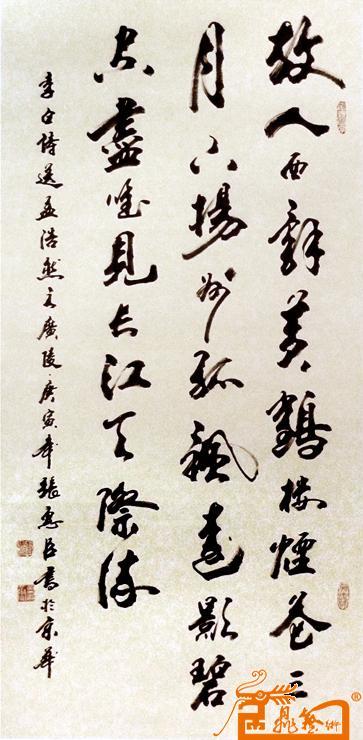 故人西辭黃鶴樓煙花三
月下揚州孤颿遠影碧
空盡唯見長江天際流
李白詩送孟浩然之廣陵 庚寅年張惠臣書於京華
藝術